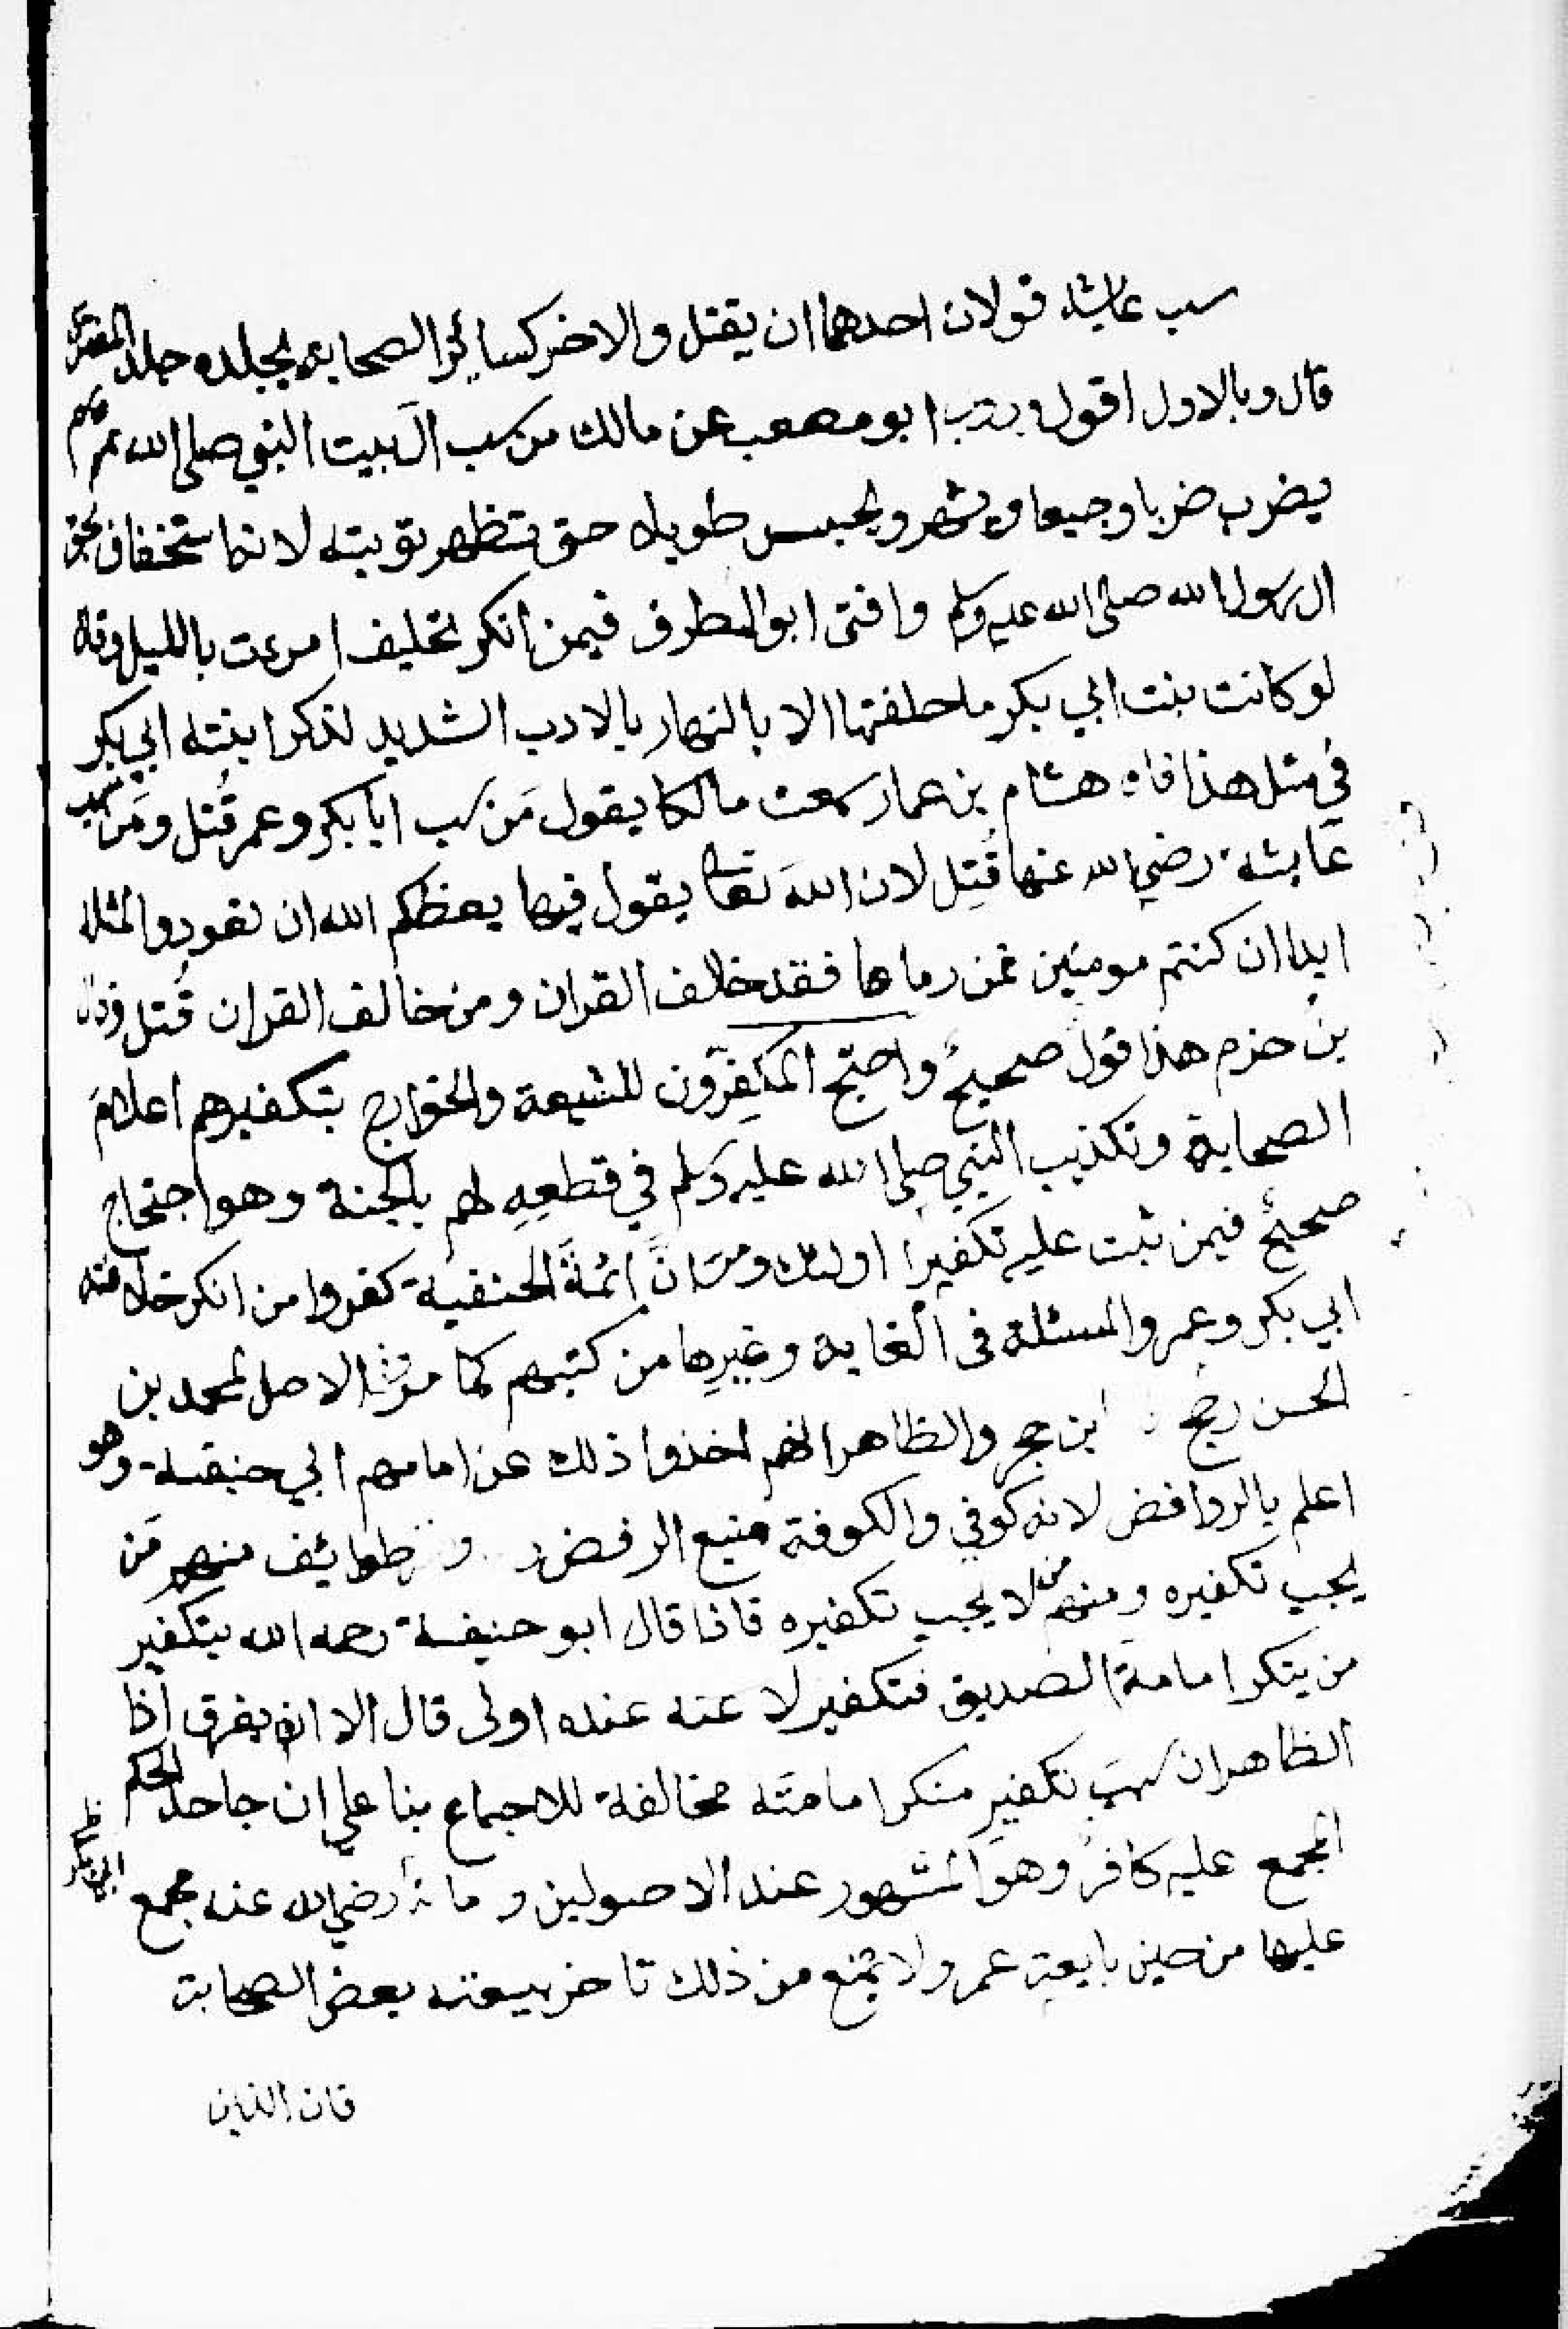 سب عايشة قولان احدهما ان يقتل والاخر كسائر الصحابة يجلده جلد المفتري
قال وبالاول اقول وروى ابو مصعب عن مالك من سب ال بيت النبي صلى الله
يضرب ضربا وجيعا ويشهر ويحبس طويلا حتى تظهر توبته لانه استخفاف بحق
الرسول الله صلى الله عليه وسلم وافتى ابو المطرف فيمن انكر تحليف امرءت بالليل وقال
لو كانت بنت ابي بكر ما حلفتها الا بالنهار بالادب الشديد لذكر ابنته ابي بكر
في مثل هذا قال هشام بن عمار سمعت مالكا يقول مَن سب ابا بكر وعمر قُتل ومَن سب
عايشة رضي الله عنها قُتِل لان اللهَ تعالى يقول فيها يعظكم الله ان تعودوا لمثله
ابدا ان كنتم مومنين فمن رماها فقد خالف القران ومن خالف القران قُتل وقال
بن حزم هذا قولٌ صحيحٌ واحتج المكفِرّون للشيعة والخوارج بتكفيرهم اعلامَ
الصحابة وتكذيب النبي صلى الله عليه وسلم في قطعِهِ لهم بالجنة وهو احتجاج
صحيحٌ فيمن ثبت عليه تكفيرا اولئك ومر انَّ ائمةَ الحنفية كفروا من انكر خلافته
ابي بكر وعمر والمسئلة في الغاية وغيرِها من كتبهم كما مر الاصل لمحمد بن
الحسن رح ابن حجر والظاهر انهم اخذوا ذلك عن امامهم ابي حنيفة وهو
اعلم بالروافض لانه كوفي والكوفة منبع الرفض و طوايف منهم مَن
يجب تكفيره ومنهم من لا يجب تكفيره فاذا قال ابو حنيفة رحمه الله بتكفير
من ينكر امامةَ الصديق فتكفير لا عنه عنده اولى قال الا ان يفرق اذا
الظاهر ان سبَبَ تكفيرِ منكر امامتَه مخالفة للاجماع بنا على ان جاحد الحكم
المجمع عليه كافرٌ وهو المشهور عند الاصولين و رضي الله عنه مجمع
عليها من حين بايعه عمر ولا يمنع من ذلك تاخر بيعته بعض الصحابة
فان الذين